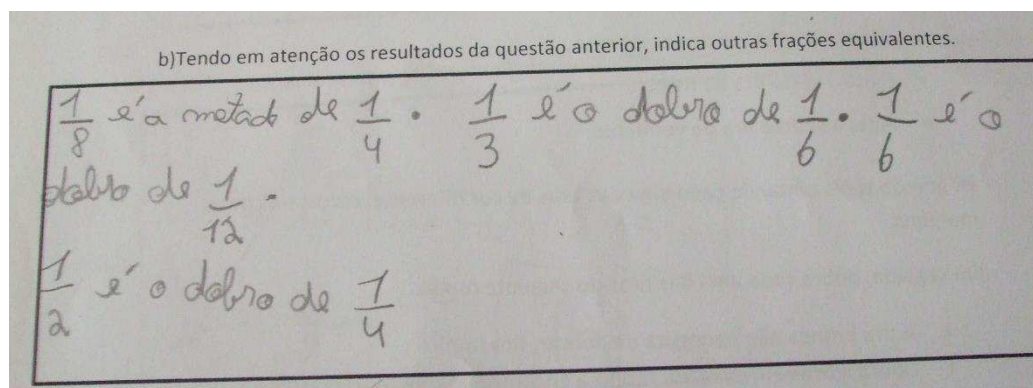 b)Tendo em atenção os resultados da questão anterior, indica outras frações equivalentes.
1/8 é a metade de 1/4. 1/3 é o dobro de 1/6. 1/6 é o
dobro de 1/12.
1/2 é o dobro de 1/4